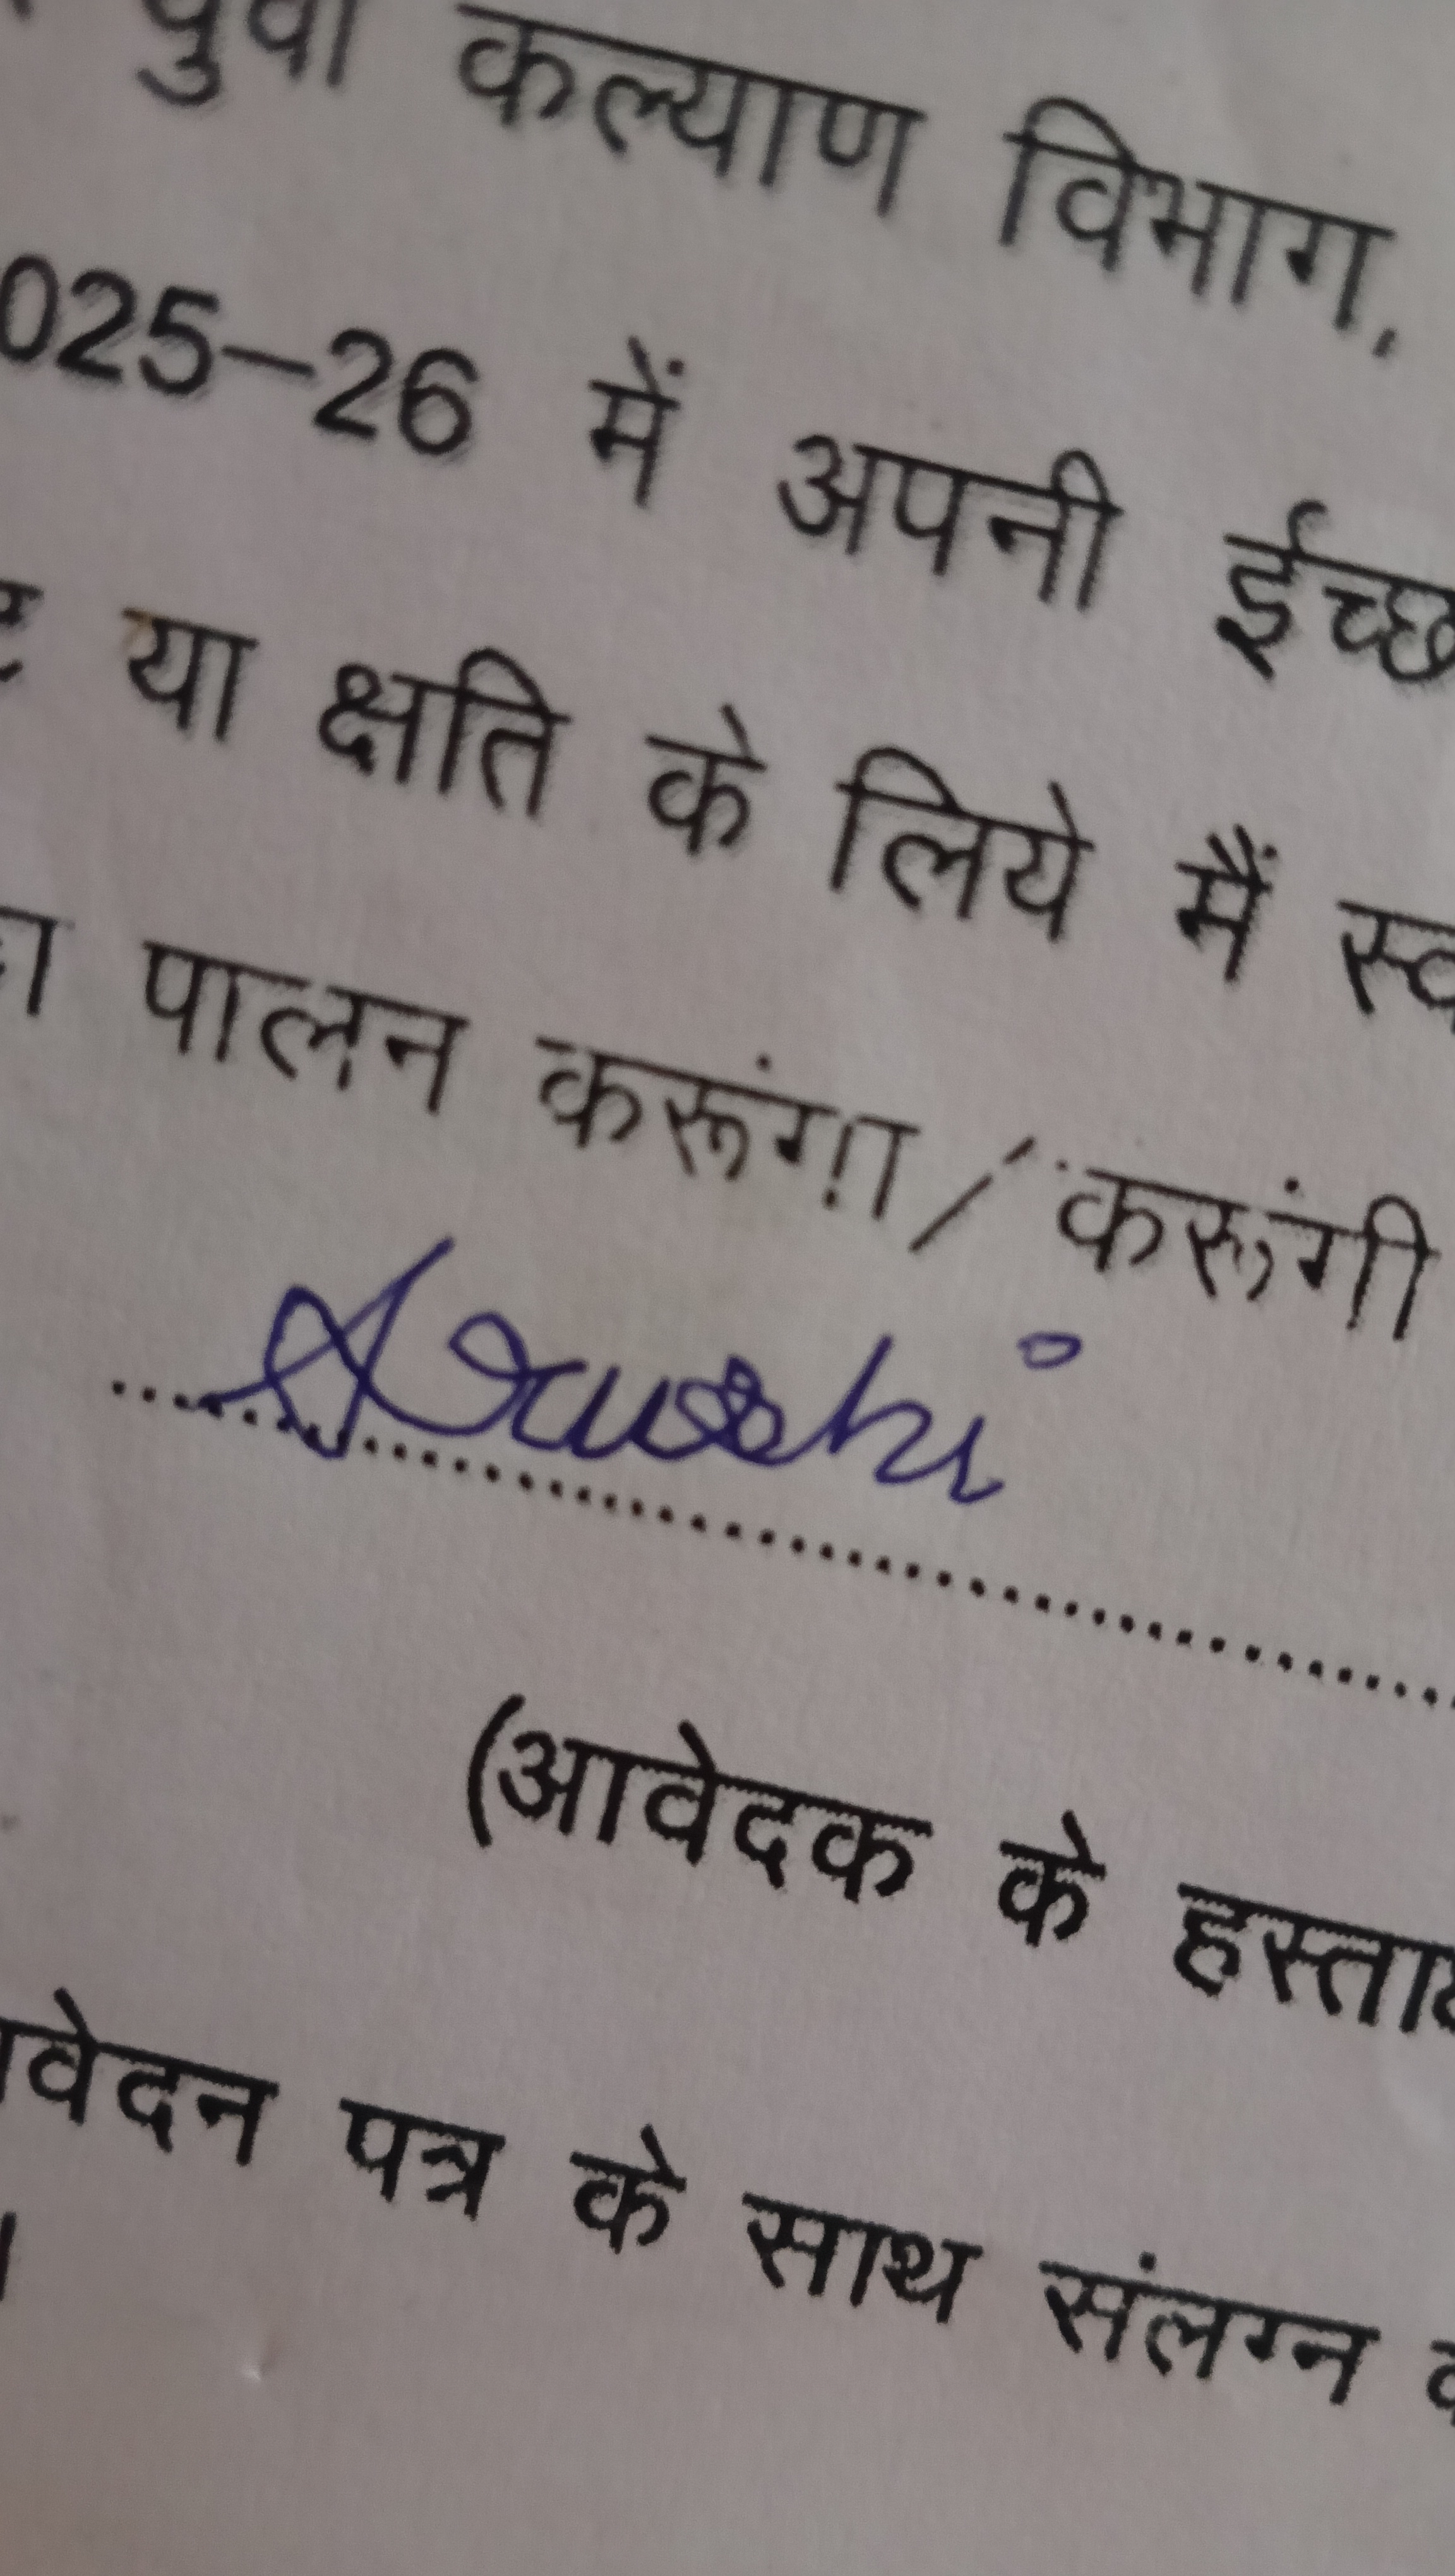 युवा कल्याण विभाग,
025-26 में अपनी ईच्छ
या क्षति के लिये मैं स्व
पालन करूंगा / करूंगी
Arushi
(आवेदक के हस्ता
वेदन पत्र के साथ संलग्न